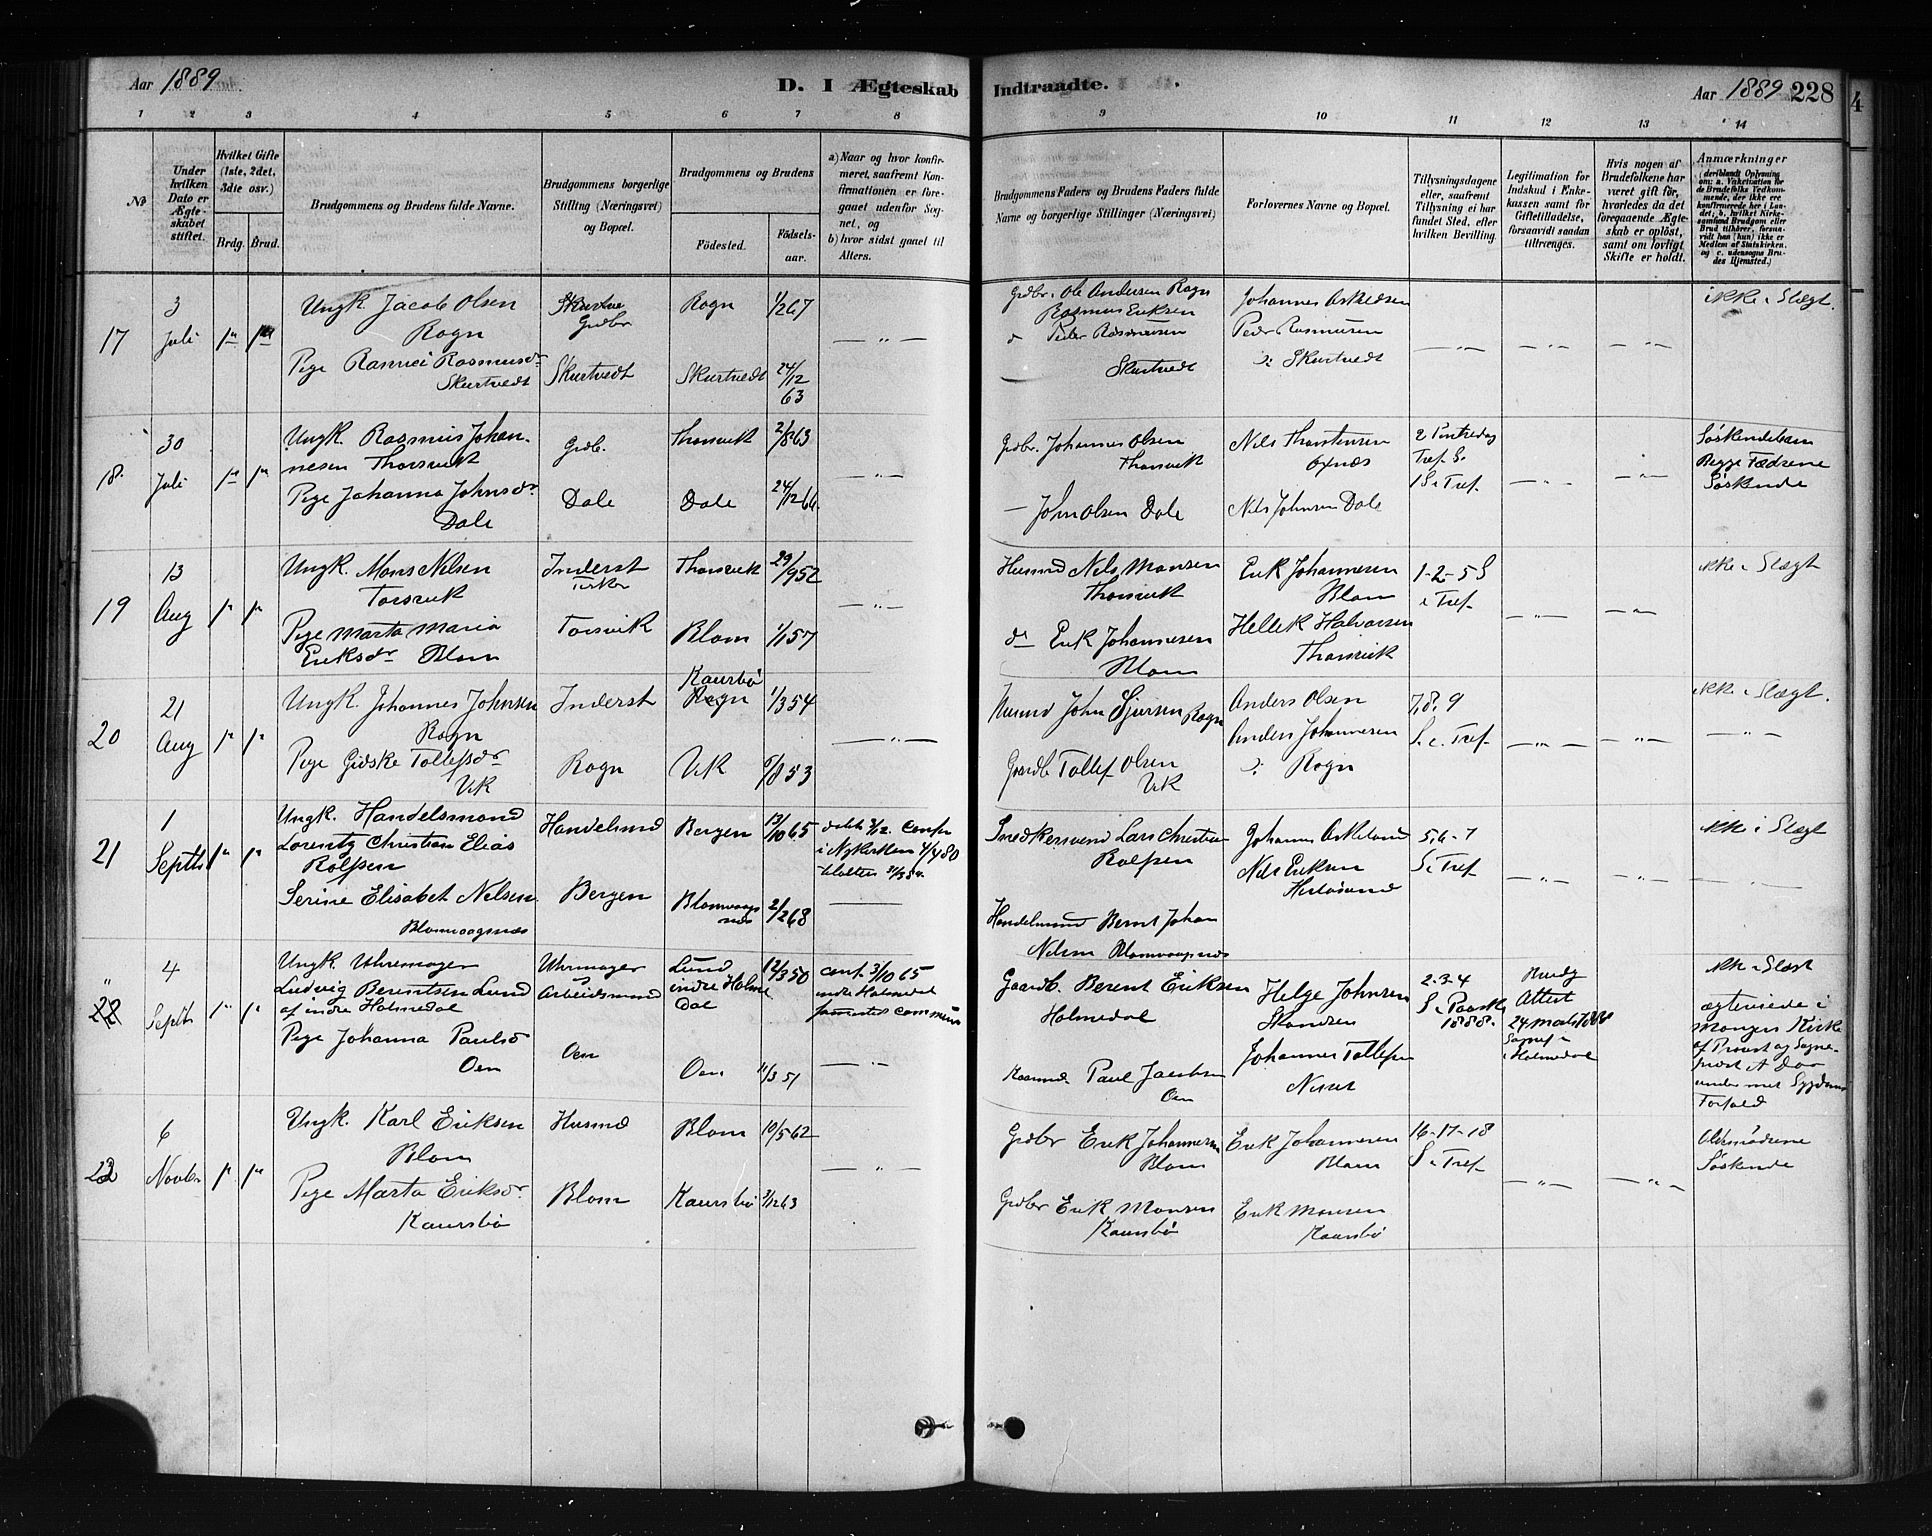 Aar 1889.
D. I Ægteskab
Indtraadte.
Aar 1889 228
4
1 2 3 4 5 6 7 8 9 10 11 12 13 14
No
Under hvilken Dato er Ægteskabet stiftet.
Hvilket Gifte (1ste, 2det, 3die osv.)
Brdg. Brud.
Brudgommens og Brudens fulde Navne.
Brudgommens borgerlige Stilling (Næringsvei) og Bopæl.
Brudgommens og Brudens
Födested.
Födselsaar.
a) Naar og hvor konfirmeret, saafremt Konfirmationen er foregaaet udenfor Sognet, og
b) hvor sidst gaaet til Alters.
Brudgommens Faders og Brudens Faders fulde Navne og borgerlige Stillinger (Næringsvei)
Forlovernes Navne og Bopæl.
Tillysningsdagene eller, saafremt Tillysning ei har fundet Sted, efter hvilken Bevilling.
Legitimation for Indskud i Enkekassen samt for Giftetilladelse, forsaavidt saadan tiltrænges.
Hvis nogen af Brudefolkene har været gift før, hvorledes da det foregaaende Ægteskab er oplöst, samt om lovligt Skifte er holdt.
Anmærkninger
(deriblandt Oplysning om: a. Vakcination for de Brudefolks Vedkommende, der ikke ere konfirmerede her i Landet; b. hvilket Kirkesamfund Brudgom eller Brud tilhörer, forsaavidt han (hun) ikke er Medlem af Statskirken, og c. udensogns Brudes Hjemsted.)
17
3 Juli
Ungk Jacob Olsen
Rogn
Grdbr
Rogn
1/2 67
Pige Rasmus
Skurtvedt
Skurtvedt
Skurtvedt
24/12 63
Grdbr. Ole Andersen Rogn
Rasmus Eriksen
Peder Rasmussen
Skurtvedt
Johannes
Peder Rasmussen
Skurtvedt
ikke i Slægt
18.
30 Juli
Ungk. Rasmus Johan-
nesen Thorsvik
Grdb.
Thorsvik
2/8 63
Pige Johanna Johnsdr
Dale
Dale
Dale
24/12 66
Grdbr. Johannes Olsen
Thorsvik
John Olsen Dale
Nils Thorstensen
Nils Johnsen Dale
2 Pintsedag
Tref. S.
1 S. e Tref
Søskendebørn
Begge Fædrene
Søskende
19
13 Aug
Ungk. Mons Nilsen
Torsvik
Inderst
Thorsvik
29/9 52
Pige Marta Maria
Eriksdr Blom
Torsvik
Blom
1/1 57
Husmd Nils Monsen
Thorsvik
do Erik Johannesen
Blom
Erik Johannesen
Blom
Hellek Halvorsen
Thorsvik
1-2-5 S
e Tref
ikke i Slægt
20
21 Aug
Ungk. Johannes Johnsen
Rogn
Inderst
Kaursbø
Rogn
1/3 54
Pige Gidske Tollefsdr
Vik
Rogn
Vik
6/8 53
Husmd John Sjursen Rogn
Gaardb Tollef Olsen
Vik
Anders Olsen
Anders Johannesen
Rogn
7, 8, 9
S. e. Tref
ikke i Slægt.
21
1 Septb
Ungk. Handelsmand
Lorentz Christian Elias
Rolfsen
Handelsmd
Bergen
13/10 65
conf
i Nykirken 4/4 80
Serine Elisabet Nilsen
Blomvaagnæs
Bergen
Blomvaag
næs
2/2 68
Snedkersvend Lars Christian
Rolfsen
Handelsmand Bernt Johan
Nilsen Blomvaagnæs
Johannes Askeland
Nils Eriksen
5, 6-7
S e Tref
ikke i Slægt
22
4 Septb
Ungk. Uhrmager
Ludvig Berentsen Lund
af indre Holmedal
Uhrmager
Arbeidsmand
Lund
indre Holme
Dal
12/3 50
conf. 3/10 65
indre Holmedal
Pige Johanna Paulsd
Oen
Oen
Oen
11/3 51
Gaardb. Berent Eriksen
Holmedal
Paul Jacobsen
Oen
Helge Johnsen
Johannes Tollefsen
2-3-4
S. e Paaske
1888.
Attest
24 Marts 1888
Holmedal
ikke i Slægt
ægteviede i
Mangers Kirke
af Provst og Sogne-
præst A Daa
Forfald
23
6 Novbr
Ungk. Karl Eriksen
Blom
Husmd
Blom
10/5 62
Pige Marta Eriksdr
Kaursbø
Blom
Kaursbø
3/12 63
Grdbr Erik Johannesen
Blom
Grdbr Erik Monsen
Kaursbø
Erik Johannesen
Blom
Erik Monsen
Kaursbø
16-17-18
S e Tref
Oldemødrene
Søskende